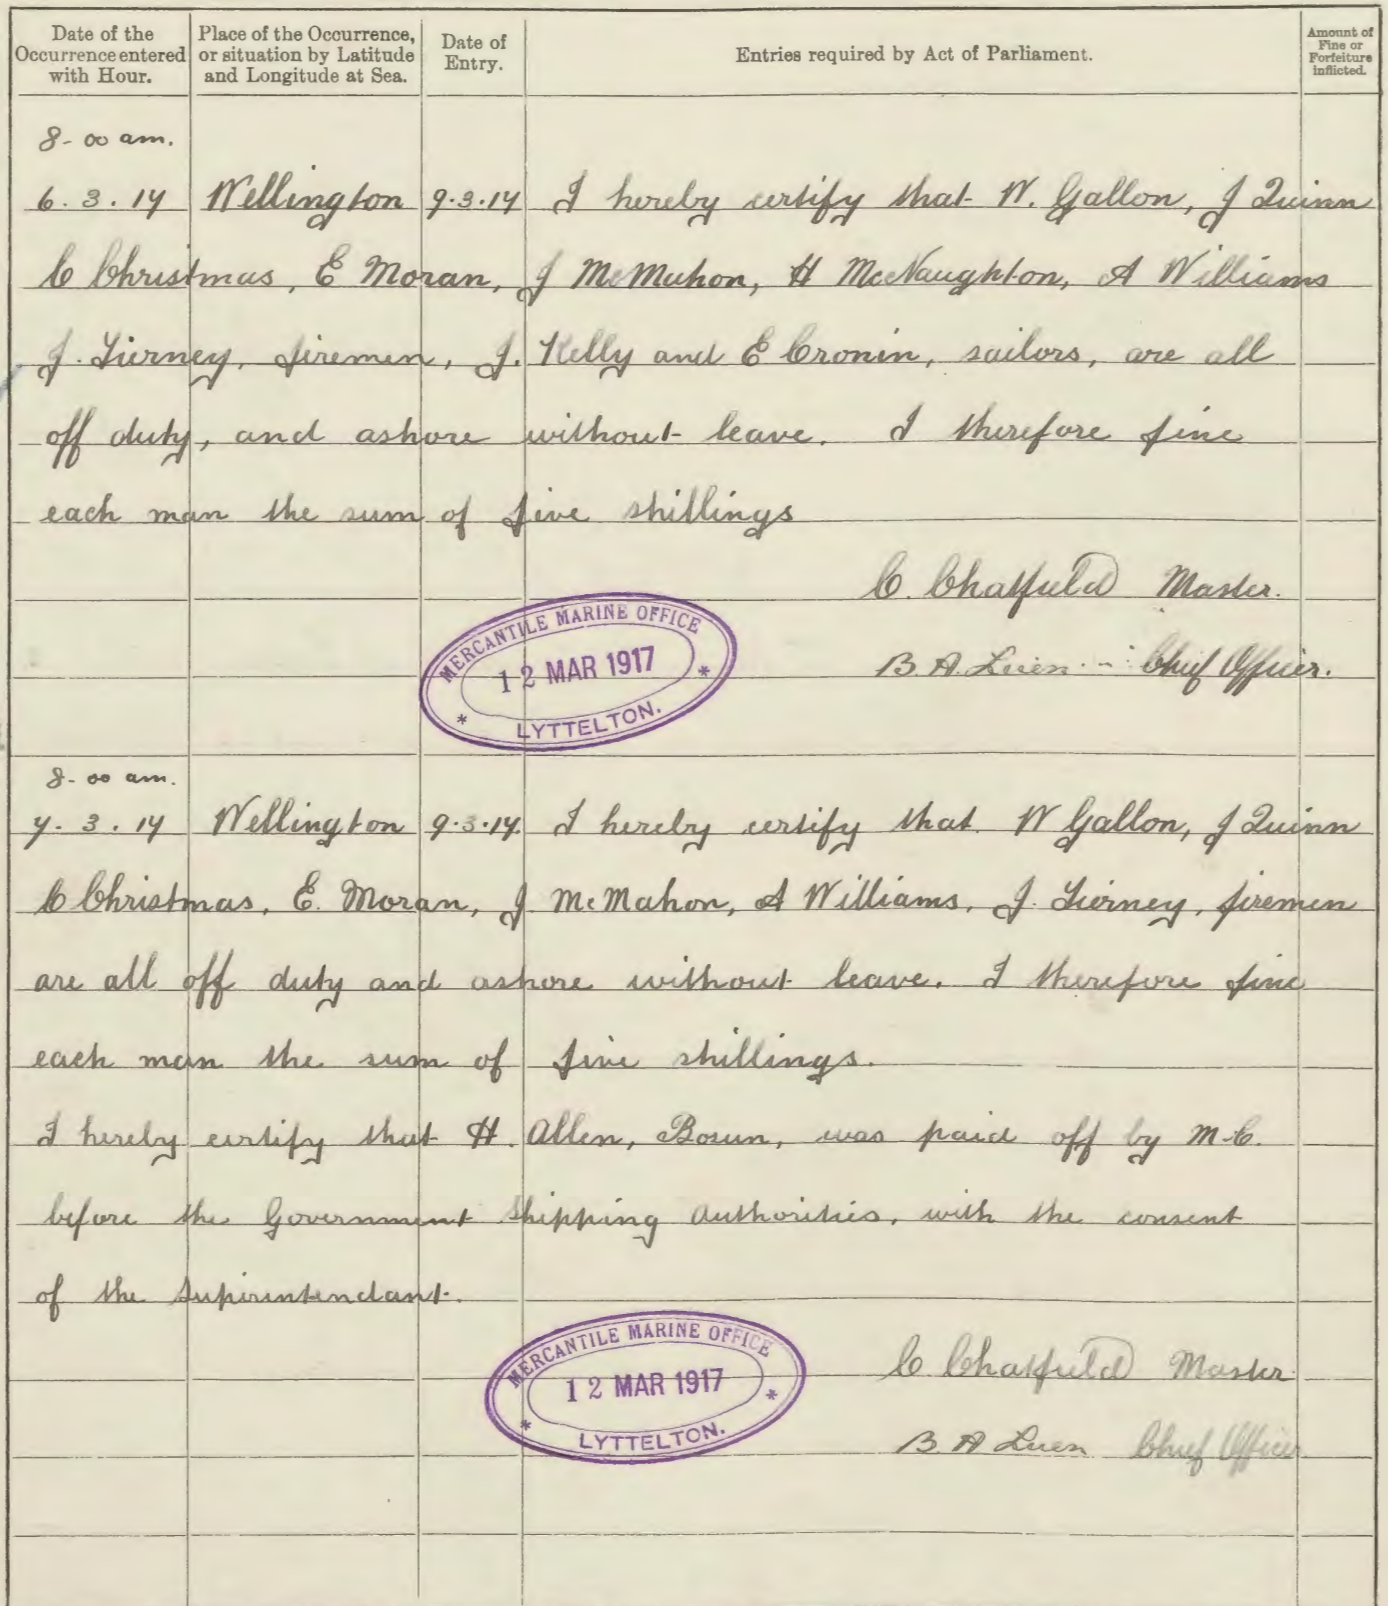 Date of the Occurrence entered with Hour.
Place of the Occurrence, or situation by Latitude and Longitude at Sea.
Date of Entry.
Entries required by Act of Parliament.
Amount of Fine or Forfeiture inflicted.
8-00 am.
6.3.17 Wellington 9.3.17 I hereby certify that W. Gallon, J Quinn
C Christmas, E Moran, J McMahon, H McNaughton, A Williams
J. Tierney, firemen, J. Kelly and E Cronin, sailors, are all
off duty, and ashore without leave. I therefore fine
each man the sum of five shillings
C. Chatfield Master.
MERCANTILE MARINE OFFICE
12 MAR 1917
LYTTELTON.
B.A. Luen Chief Officer.
8-00 am.
7.3.17 Wellington 9.3.17. I hereby certify that W Gallon, J Quinn
C Christmas, E. Moran, J. McMahon, A Williams, J. Tierney, firemen
are all off duty and ashore without leave. I therefore fine
each man the sum of five shillings.
I hereby certify that H. Allen, Bosun, was paid off by M.C.
before the Government Shipping Authorities, with the consent
of the Superintendant.
MERCANTILE MARINE OFFICE
12 MAR 1917
LYTTELTON.
C Chatfield Master
B A Luen Chief Officer